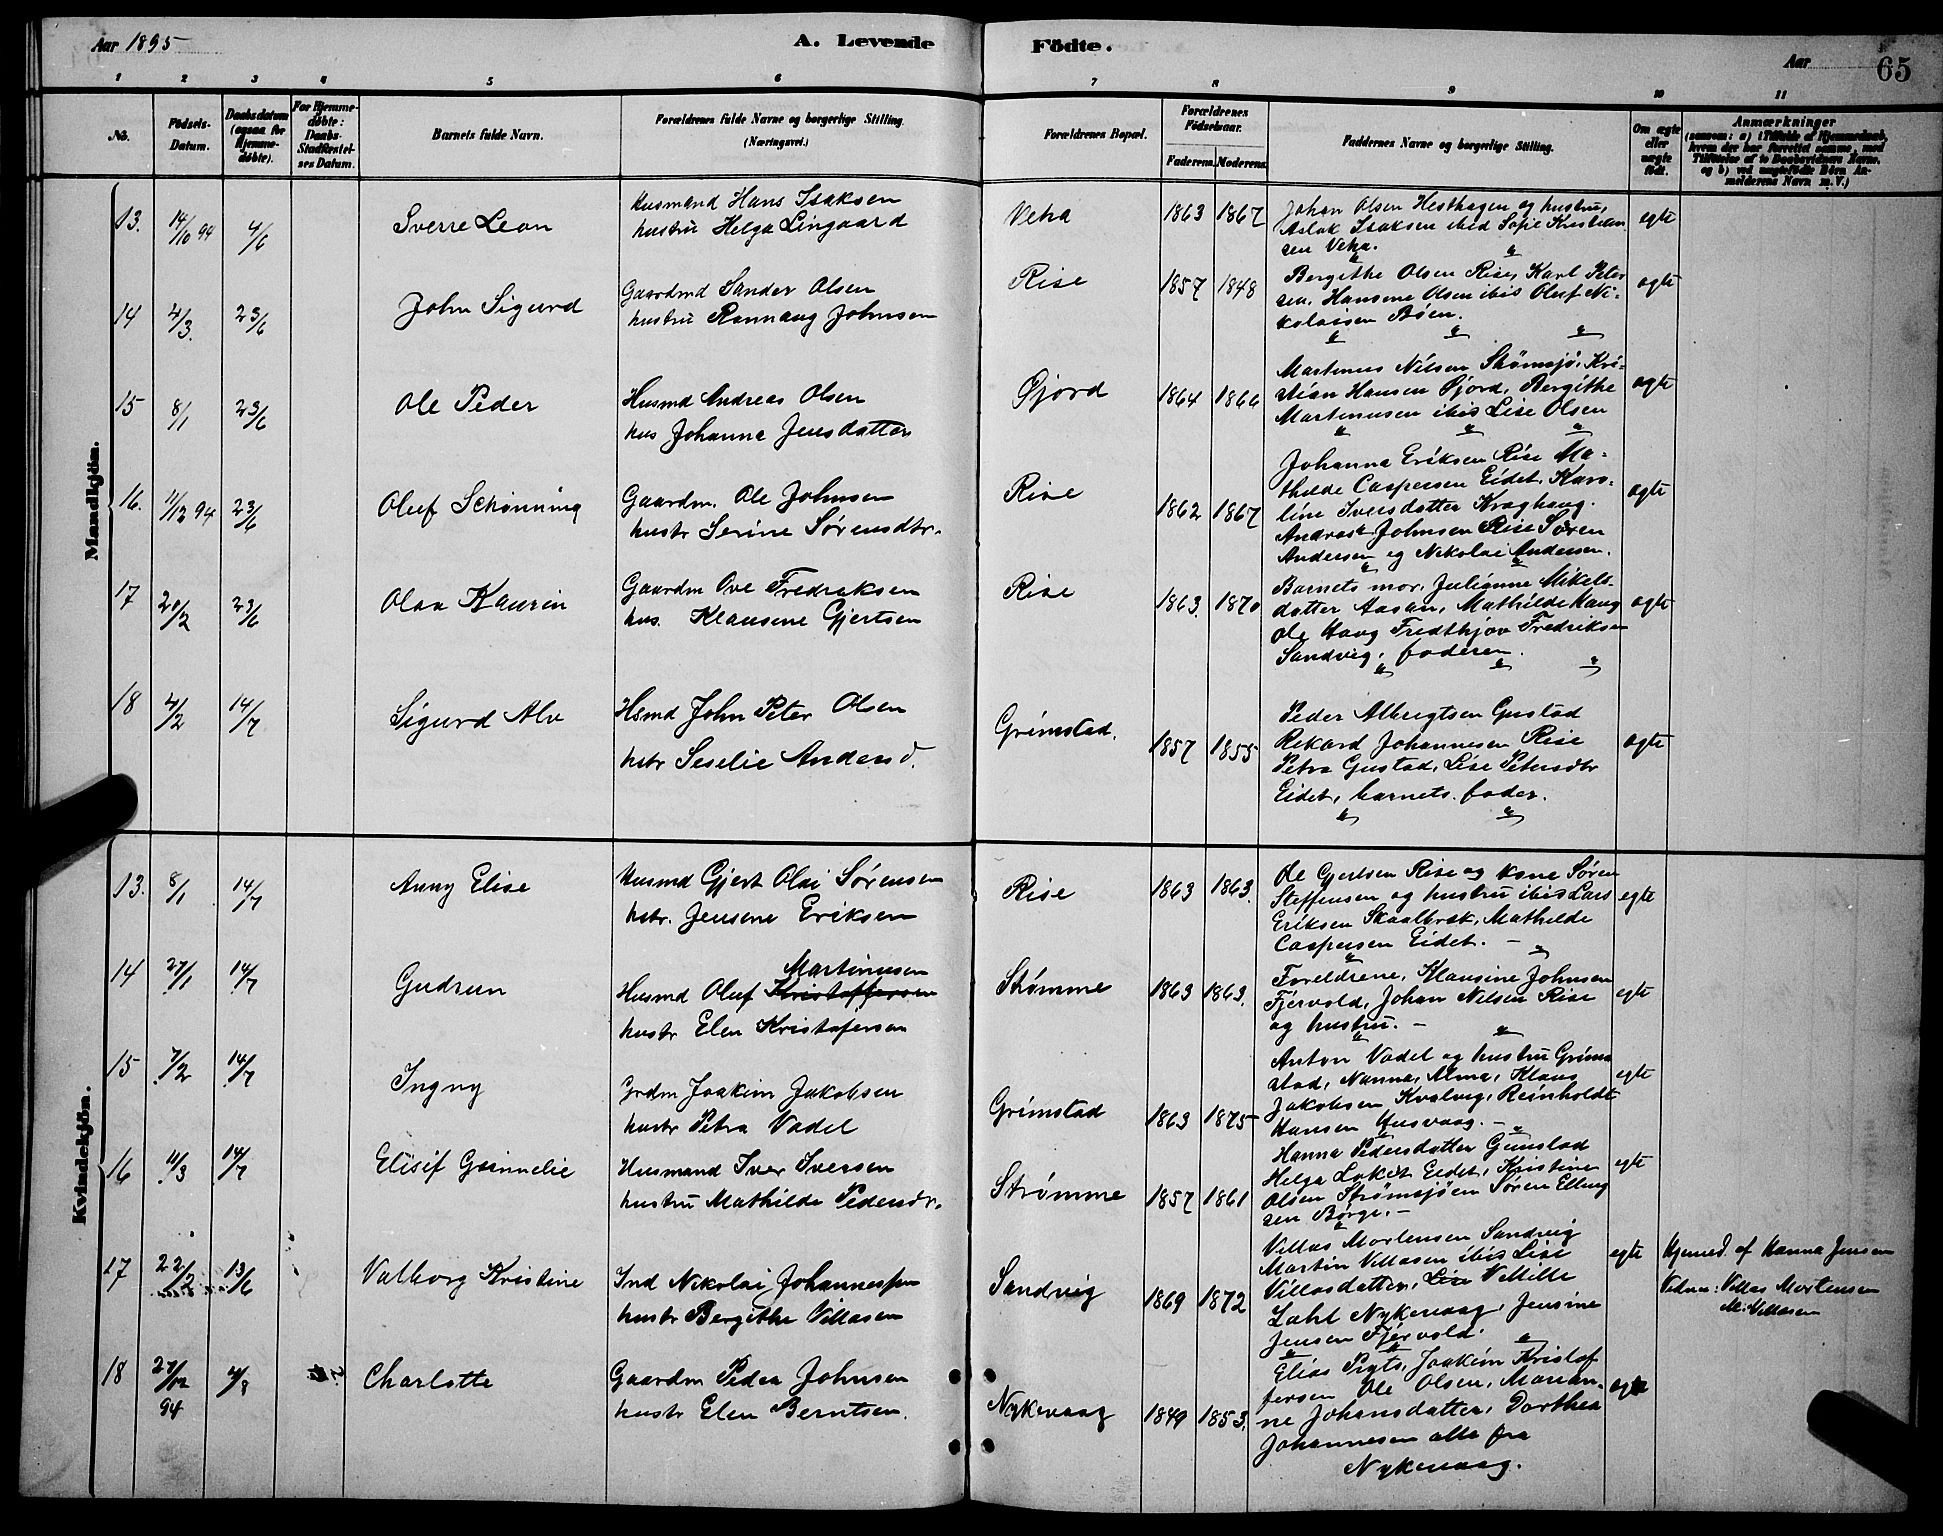 Aar 1895
A. Levende
Födte.
Aar
65
1 2 3 4 5 6 7 8 9 10 11
No.
Födsels-
Datum.
Daabsdatum
(ogsaa for
Hjemme-
døbte).
For Hjemme-
døbte:
Daabs-
Stadfæstel-
ses Datum.
Barnets fulde Navn.
Forældrenes fulde Navne og borgerlige Stilling.
(Næringsvei.)
Forældrenes Bopæl.
Forældrenes
Födselsaar.
Faderens. Moderens.
Faddernes Navne og borgerlige Stilling.
Om ægte
eller
uægte
födt.
Anmærkninger
(saasom: a) i Tilfælde af Hjemmedaab,
hvem der har forrettet samme, med
Tilföielse af to Daabsvidners Navne,
og b) ved uægtefödte Börn An-
melderens Navn m.V.)
Mandkjön.
13. 14/10 94 4/6 Sverre Leon
Husmand Hans Isaksen
hustru Helga Lingaard
Veha 1863 1867
Johan Olsen Hesthagen og hustru,
Aslak Isaksen ibid Sofie Kristian
sen Veha.
egte
14 4/3. 23/6 John Sigurd
Gaardmd Sander Olsen
hustru Rannaug Johnsen
Rise 1857 1848
Bergithe Olsen Rise, Karl Peter
sen, Hansene Olsen ibis Oluf Ni-
kolaisen Bøen.
egte
15 8/1 23/6 Ole Peder
Husmd Andreas Olsen
hus Johanna Jensdatter
Gjord 1864 1866
Martenus Nilsen Strømsjø, Kri-
stian Hansen Gjord, Bergithe
Martenusen ibis Lise Olsen
egte
16. 11/12 94 23/6 Oluf Schønning
Gaardm. Ole Johnsen
hustr Serine Sørensdtr.
Rise 1862 1867
Johanna Eriksen Rise Ma-
thilde Caspersen Eidet, Karo-
line Iversdatter Kraghaug.
Andreas Johnsen Rise Søren
Andersen og Nikolai Andersen.
egte
17 20/2 23/6 Olaa Kaurin
Gaardm Ove Fredraksen
hus. Klausene Gjertsen
Rise 1863. 1870
Barnets mor, Julianne Mikels-
datter Aasan, Mathilde Haug
Ole Haug Fredthjov Fredriksen
Sandvig, faderen.
egte
18 4/2 14/7 Sigurd Alv
Hsmd John Peter Olsen
hstr Seselie Andersd.
Grimstad. 1857 1855
Peder Albrigtsen Gustad
Rikard Johannesen Rise
Petra Gustad, Lise Petersdtr
Eidet, barnets fader.
egte
Kvindekjön.
13. 8/1 14/7 Anny Elise
Husmd Gjert Olai Sørensen
hstr. Jensene Eriksen
Rise 1863 1863.
Ole Gjertsen Rise og kone Søren
Steffensen og hustru ibis Lars
Eriksen Skaalbrek, Mathilde
Caspersen Eidet. -
egte
14 27/1 14/7 Gudrun
Martinusen
Husmd Oluf Kristoffersen
hustr Elen Kristofersen
Strømme 1863 1863.
Foreldrene, Klausine Johnsen
Fjervold, Johan Nilsen Rise
og hustru. -
egte
15 7/2 14/7 Ingny
Grdm Joakim Jakobsen
hustr Petra Vadel
Grimstad 1863 1875
Anton Vadel og hustru Grims
stad, Nanna, Alma, Klaus
Jakobsen Kvalvig, Reinholdt
Hansen Husvaag. -
egte
16 11/3 14/7 Elisif Gunnelie
Husmand Iver Iversen
hustru Mathilde Pedersdr.
Strømme 1857 1861
Hanna Pedersdatter Gunstad
Helga Loket Eidet, Kristine
Olsen Strømsjøen Søren Elling
sen Børge. -
egte
17 22/2 13/6 Valborg Kristine
Ind Nikolai Johannessen
hustr Bergithe Villasen
Sandvig 1869 1872
Villas Mortensen Sandvig
Martin Villasen ibis Lise
Villasdatter, Lise Vetille
Lahl Nykevaag, Jensine
Jensen Fjervold.
egte
Hjemed. af Hanna Jensen
Vidner: Villas Mortensen
M. Villasen
18 27/12 94 4/8 Charlotte
Gaardm Peder Johnsen
hustr Elen Berntsen.
Nykevaag 1849 1853.
Elias Pigts, Joakim Kristof
fersen Ole Olsen, Marian-
ne Johansdatter, Dorthea
Johannesen alle fra
Nykevaag.
egte